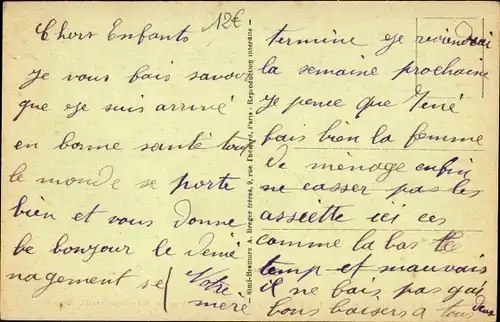 12€
Chers Enfants
je vous fais savoir
que je suis arrivé
en bonne santé tout
le monde se porte
bien et vous donne
be bonjour le démé
nagement se
termine je reviendrai
la semaine prochaine
je pence que René
fais bien la femme
de ménage enfin
ne casser pas les
assiette ici ces
comme la bas le
temp et mauvais
il ne fais pas gai
bons baisers a tous deux
Votre
meré
Simi-Bromure A. Breger frères, 9, rue Thénard, Paris - Reproduction interdite